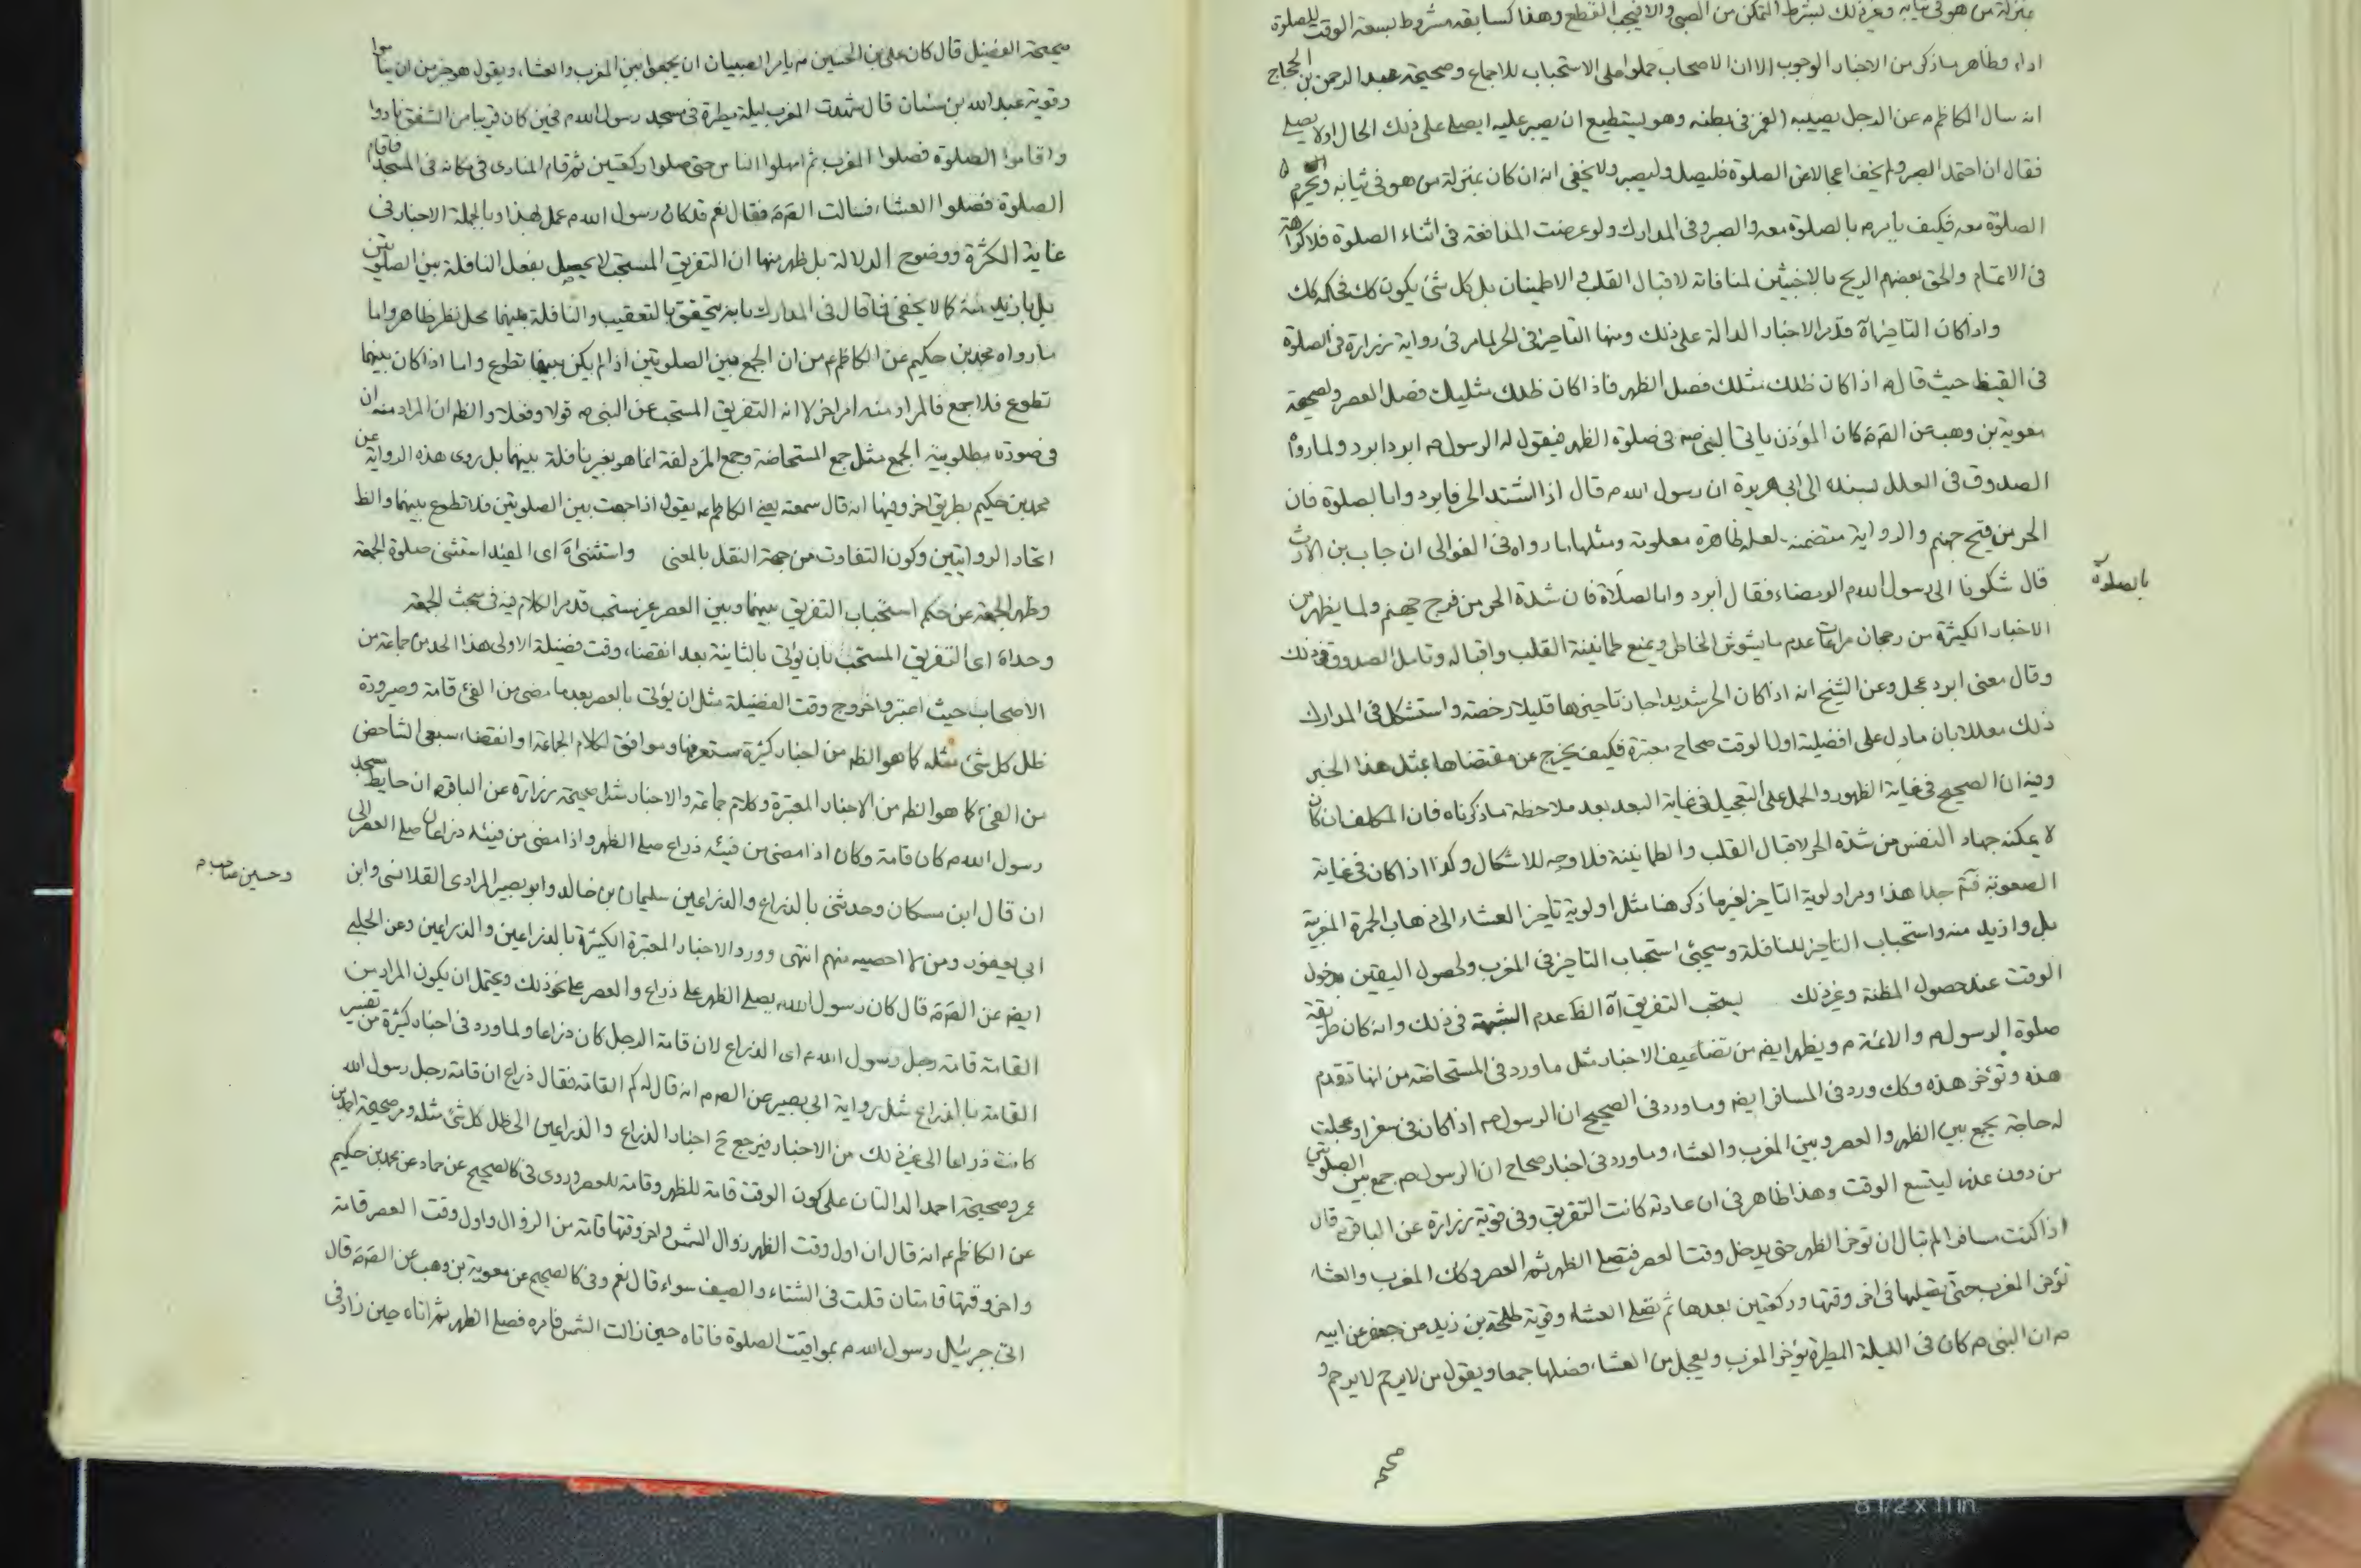 بمنزلة من هو في ثيابه وغير ذلك بشرط التمكن من الصبر والا فيجب القطع وهذا كسابقه مشروط بسعة الوقت للصلوة
اداء وظاهر ما ذكر من الاخبار الوجوب الا ان الاصحاب حملوا على الاستحباب للاجماع وصحيحة عبد الرحمن بن الحجاج
انه سال الكاظم ع عن الرجل يصيبه الغمز في بطنه وهو يستطيع ان يصبر عليه ايصلي على ذلك الحال اولا يصلي
فقال ان احتمل الصبر ولم يخف اعجالا عن الصلوة فليصل وليصبر ولا يخفى انه ان كان بمنزلة من هو في ثيابه ويحرم
الصلوة معه فكيف يأمره بالصلوة معه والصبر وفي المدارك ولو عرضت المدافعة في اثناء الصلوة فلا كراهة
في الاتمام والحق بعضهم الريح بالاخبثين لمنافاته لاقبال القلب والاطمينان بل كل شئ يكون كك فحكمه كك
واذا كان التاخير آه قد مر الاخبار الدالة على ذلك ومنها التاخير في الحر لما مر في رواية زرارة في الصلوة
في القيظ حيث قال ع اذا كان ظلك مثلك فصل الظهر فاذا كان ظلك مثليك فصل العصر ولصحيحة
معوية بن وهب عن الصّ ع كان المؤذن ياتي النبي ص في صلوة الظهر فيقول له الرسول ص ابرد ابرد ولما رواه
الصدوق في العلل بسنده الى ابي هريرة ان رسول الله ص قال اذا اشتد الحر فابردوا بالصلوة فان
الحر من فيح جهنم والرواية متضمنه لعلة ظاهرة معلومة ومثلها ما رواه في الغوالي ان خباب بن الارت
قال شكونا الى رسول الله ص الرمضاء فقال أبردوا بالصلاة فان شدة الحر من فوح جهنم ولما يظهر من
بالصلوة
الاخبار الكثيرة من رجحان مراعات عدم ما يشوش الخاطر ويمنع طمانينة القلب واقباله وتامل الصدوق في ذلك
وقال معنى ابرد عجل وعن الشيخ انه اذا كان الحر شديدا جاز تاخيرها قليلا رخصة واستشكل في المدارك
ذلك معللا بان ما دل على افضلية اول الوقت صحاح معتبرة فكيف يخرج عن مقتضاها بمثل هذا الخبر
وفيه ان الصحيح في غاية الظهور والحمل على التعجيل في غاية البعد بعد ملاحظة ما ذكرناه فان المكلف ان كان
لا يمكنه جهاد النفس من شدة الحر لاقبال القلب والطمانينة فلا وجه للاشكال وكذا اذا كان في غاية
الصعوبة فتم جدا هذا ومر اولوية التاخير لغير ما ذكر هنا مثل اولوية تأخير العشاء الى ذهاب الحمرة المغربية
بل وازيد منه واستحباب التاخير للنافلة وسيجئ استحباب التاخير في المغرب ولحصول اليقين بدخول
الوقت عند حصول المظنة وغير ذلك يستحب التفريق آه الظ عدم الشبهة في ذلك وانه كان طريقة
صلوة الرسول ص والائمة ع ويظهر ايضا من تضاعيف الاخبار مثل ما ورد في المستحاضة من انها تقدم
هذه وتؤخر هذه وكك ورد في المسافر ايضا وما ورد في الصحيح ان الرسول ص اذا كان في سفر او عجلت
له حاجة يجمع بين الظهر والعصر وبين المغرب والعشاء وما ورد في اخبار صحاح ان الرسول ص جمع بين الصلوتين
من دون علة ليتسع الوقت وهذا ظاهر في ان عادته كانت التفريق وفي قوية زرارة عن الباقر ع قال
اذا كنت مسافرا لم تبال ان تؤخر الظهر حتى يدخل وقت العصر فتصلي الظهر ثم العصر وكك المغرب والعشاء
تؤخر المغرب حتى تصليها في اخر وقتها وركعتين بعدها ثم تصلي العشاء وقوية طلحة بن زيد عن جعفر عن ابيه
ع ان النبي ص كان في الليلة المطيرة يؤخر المغرب ويعجل من العشاء فصلهما جمعا ويقول من لا يرحم لا يرحم و
صحيحة
صحيحة الفضيل قال كان علي بن الحسين ع يامر الصبيان ان يجمعوا بين المغرب والعشاء ويقول هو خير من ان يناموا
وقوية عبد الله بن سنان قال شهدت المغرب ليلة مطيرة في مسجد رسول الله ص فحين كان قريبا من الشفق نادوا
واقاموا الصلوة فصلوا المغرب ثم امهلوا الناس حتى صلوا ركعتين ثم قام المنادي في مكانه في المسجد فاقام
الصلوة فصلوا العشاء فسالت الصّ ع فقال نعم قد كان رسول الله ص عمل بهذا وبالجملة الاخبار في
غاية الكثرة ووضوح الدلالة بل ظهر منها ان التفريق المستحب لا يحصل بفعل النافلة بين الصلوتين
بل بازيد منه كما لا يخفى فما قال في المدارك بانه يتحقق بالتعقيب والنافلة بينهما محل نظر ظاهر واما
ما رواه محمد بن حكيم عن الكاظم ع من ان الجمع بين الصلوتين اذا لم يكن بينهما تطوع واما اذا كان بينهما
تطوع فلا جمع فالمراد منه امر اخر لا انه التفريق المستحب عن النبي ص قولا وفعلا والظ ان المراد منه ان
في صورة مطلوبية الجمع مثل جمع المستحاضة وجمع المزدلفة انما هو بغير نافلة بينهما بل روى هذه الرواية عن
محمد بن حكيم بطريق اخر وفيها انه قال سمعته يعني الكاظم ع يقول اذا جمعت بين الصلوتين فلا تطوع بينهما والظ
اتحاد الروايتين وكون التفاوت من جهة النقل بالمعنى واستثنى آه اى المفيد استثنى صلوة الجمعة
وظهر الجمعة عن حكم استحباب التفريق بينهما وبين العصر غير مستحب قد مر الكلام فيه في مبحث الجمعة
وحداه اى التفريق المستحب بان يؤتى بالثانية بعد انقضاء وقت فضيلة الاولى هذا الحد من جماعة من
الاصحاب حيث اعتبروا خروج وقت الفضيلة مثل ان يؤتى بالعصر بعد ما مضى من الفئ قامة وصيرورة
ظل كل شئ مثله كما هو الظ من اخبار كثيرة ستعرفها وموافق لكلام الجماعة او انقضاء سبعي الشاخص
من الفئ كما هو الظ من الاخبار المعتبرة وكلام جماعة والاخبار مثل صحيحة زرارة عن الباقر ع ان حايط مسجد
رسول الله ص كان قامة وكان اذا مضى من فيئه ذراع صلى الظهر واذا مضى من فيئه ذراعان صلى العصر الى
ان قال ابن مسكان وحدثني بالذراع والذراعين سليمان بن خالد وابو بصير المرادي القلانسي وابن
وحسين صاحب م
ابي يعفور ومن لا احصيه منهم انتهى وورد الاخبار المعتبرة الكثيرة بالذراعين والذراعين وعن الحلبي
ايضا عن الصّ ع قال كان رسول الله يصلي الظهر على ذراع والعصر على نحو ذلك ويحتمل ان يكون المراد من
القامة قامة رحل رسول الله ص اى الذراع لان قامة الرحل كان ذراعا ولما ورد في اخبار كثيرة من تفسير
القامة بالذراع مثل رواية ابي بصير عن الصّ ع انه قال له كم القامة فقال ذراع ان قامة رحل رسول الله
كانت ذراعا الى غير ذلك من الاخبار فيرجع ح اخبار الذراع والذراعين الى ظل كل شئ مثله ومر صحيحة احمد بن
عمر وصحيحة احمد الدالتان على كون الوقت قامة للظهر وقامة للعصر وروى في كالصحيح عن حماد عن محمد بن حكيم
عن الكاظم ع انه قال ان اول وقت الظهر زوال الشمس واخر وقتها قامة من الزوال واول وقت العصر قامة
واخر وقتها قامتان قلت في الشتاء والصيف سواء قال نعم وفي كالصحيح عن معوية بن وهب عن الصّ ع قال
اتى جبرئيل رسول الله ص بمواقيت الصلوة فاتاه حين زالت الشمس فامره فصلى الظهر ثم اتاه حين زاد في
8 1/2 x 11 in.